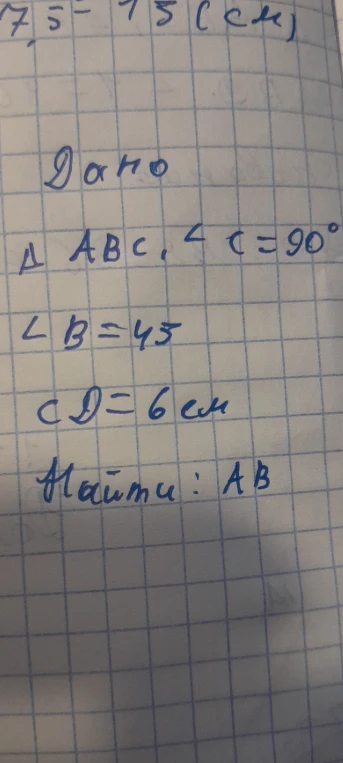 7,5 = 15 (см)
Дано
Δ ABC, ∠ C = 90°
∠ B = 45
CD = 6 см
Найти : AB